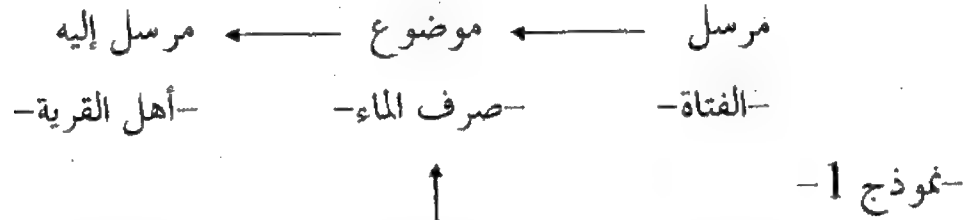 مرسل موضوع مرسل إليه
-الفتاة- -صرف الماء- -أهل القرية-
-نموذج 1-